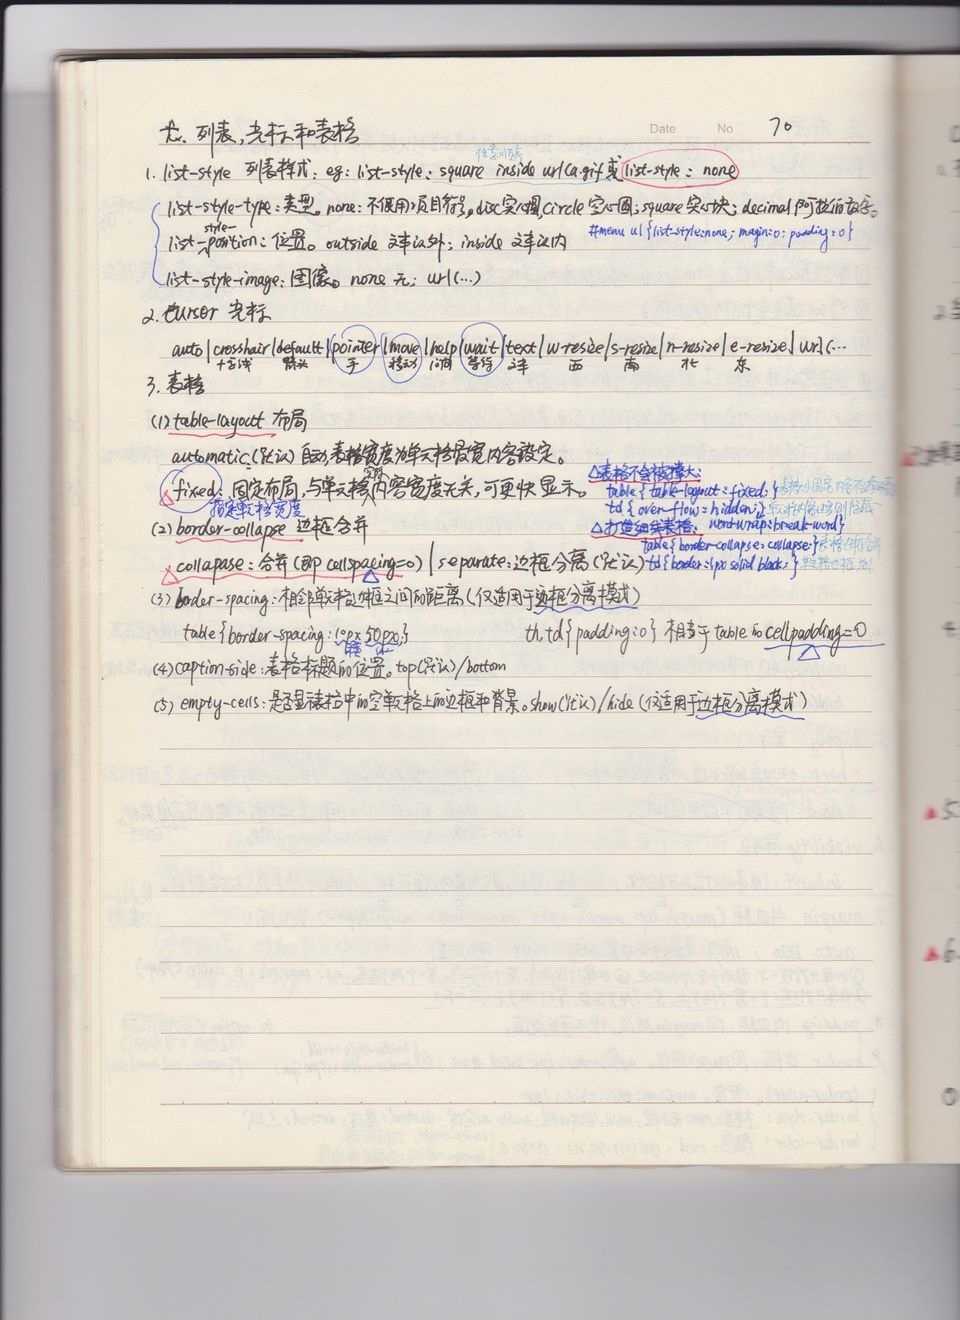 Date No 70
六、列表、光标和表格
任意顺序
1. list-style 列表样式: eg: list-style: square inside url(a.gif) 或 list-style: none
list-style-type: 类型。none: 不使用项目符号。disc实心圆; circle 空心圆; square 实心块; decimal 阿拉伯数字。
list-style-position: 位置。outside 文本以外; inside 文本以内
#menu ul {list-style:none; margin:0; padding:0}
list-style-image: 图像。none 无; url(...)
2. cursor 光标
auto | crosshair | default | pointer | move | help | wait | text | w-resize | s-resize | n-resize | e-resize | url(...
十字线 箭头 手 移动 问号 等待 文本 西 南 北 东
3. 表格
(1) table-layout 布局
automatic: (默认) 自动, 表格宽度为单元格最宽内容设定。
fixed: 固定布局, 与单元格内容宽度无关, 可更快显示。
指定单元格宽度
△表格不会被撑大:
table {table-layout: fixed;}
td {over-flow: hidden;}
word-wrap: break-word}
△打造细线表格:
table {border-collapse: collapse;}
td {border: 1px solid black;}
(2) border-collapse 边框合并
collapase: 合并 (即 cellspacing=0) | separate: 边框分离 (默认)
(3) border-spacing: 相邻单元格边框之间的距离 (仅适用于边框分离模式)
table {border-spacing: 10px 50px;} th, td {padding:0} 相当于 table 的 cellpadding=0
(4) caption-side: 表格标题的位置。top (默认) / bottom
(5) empty-cells: 是否显表格中的空单元格上的边框和背景。show (默认) / hide (仅适用于边框分离模式)